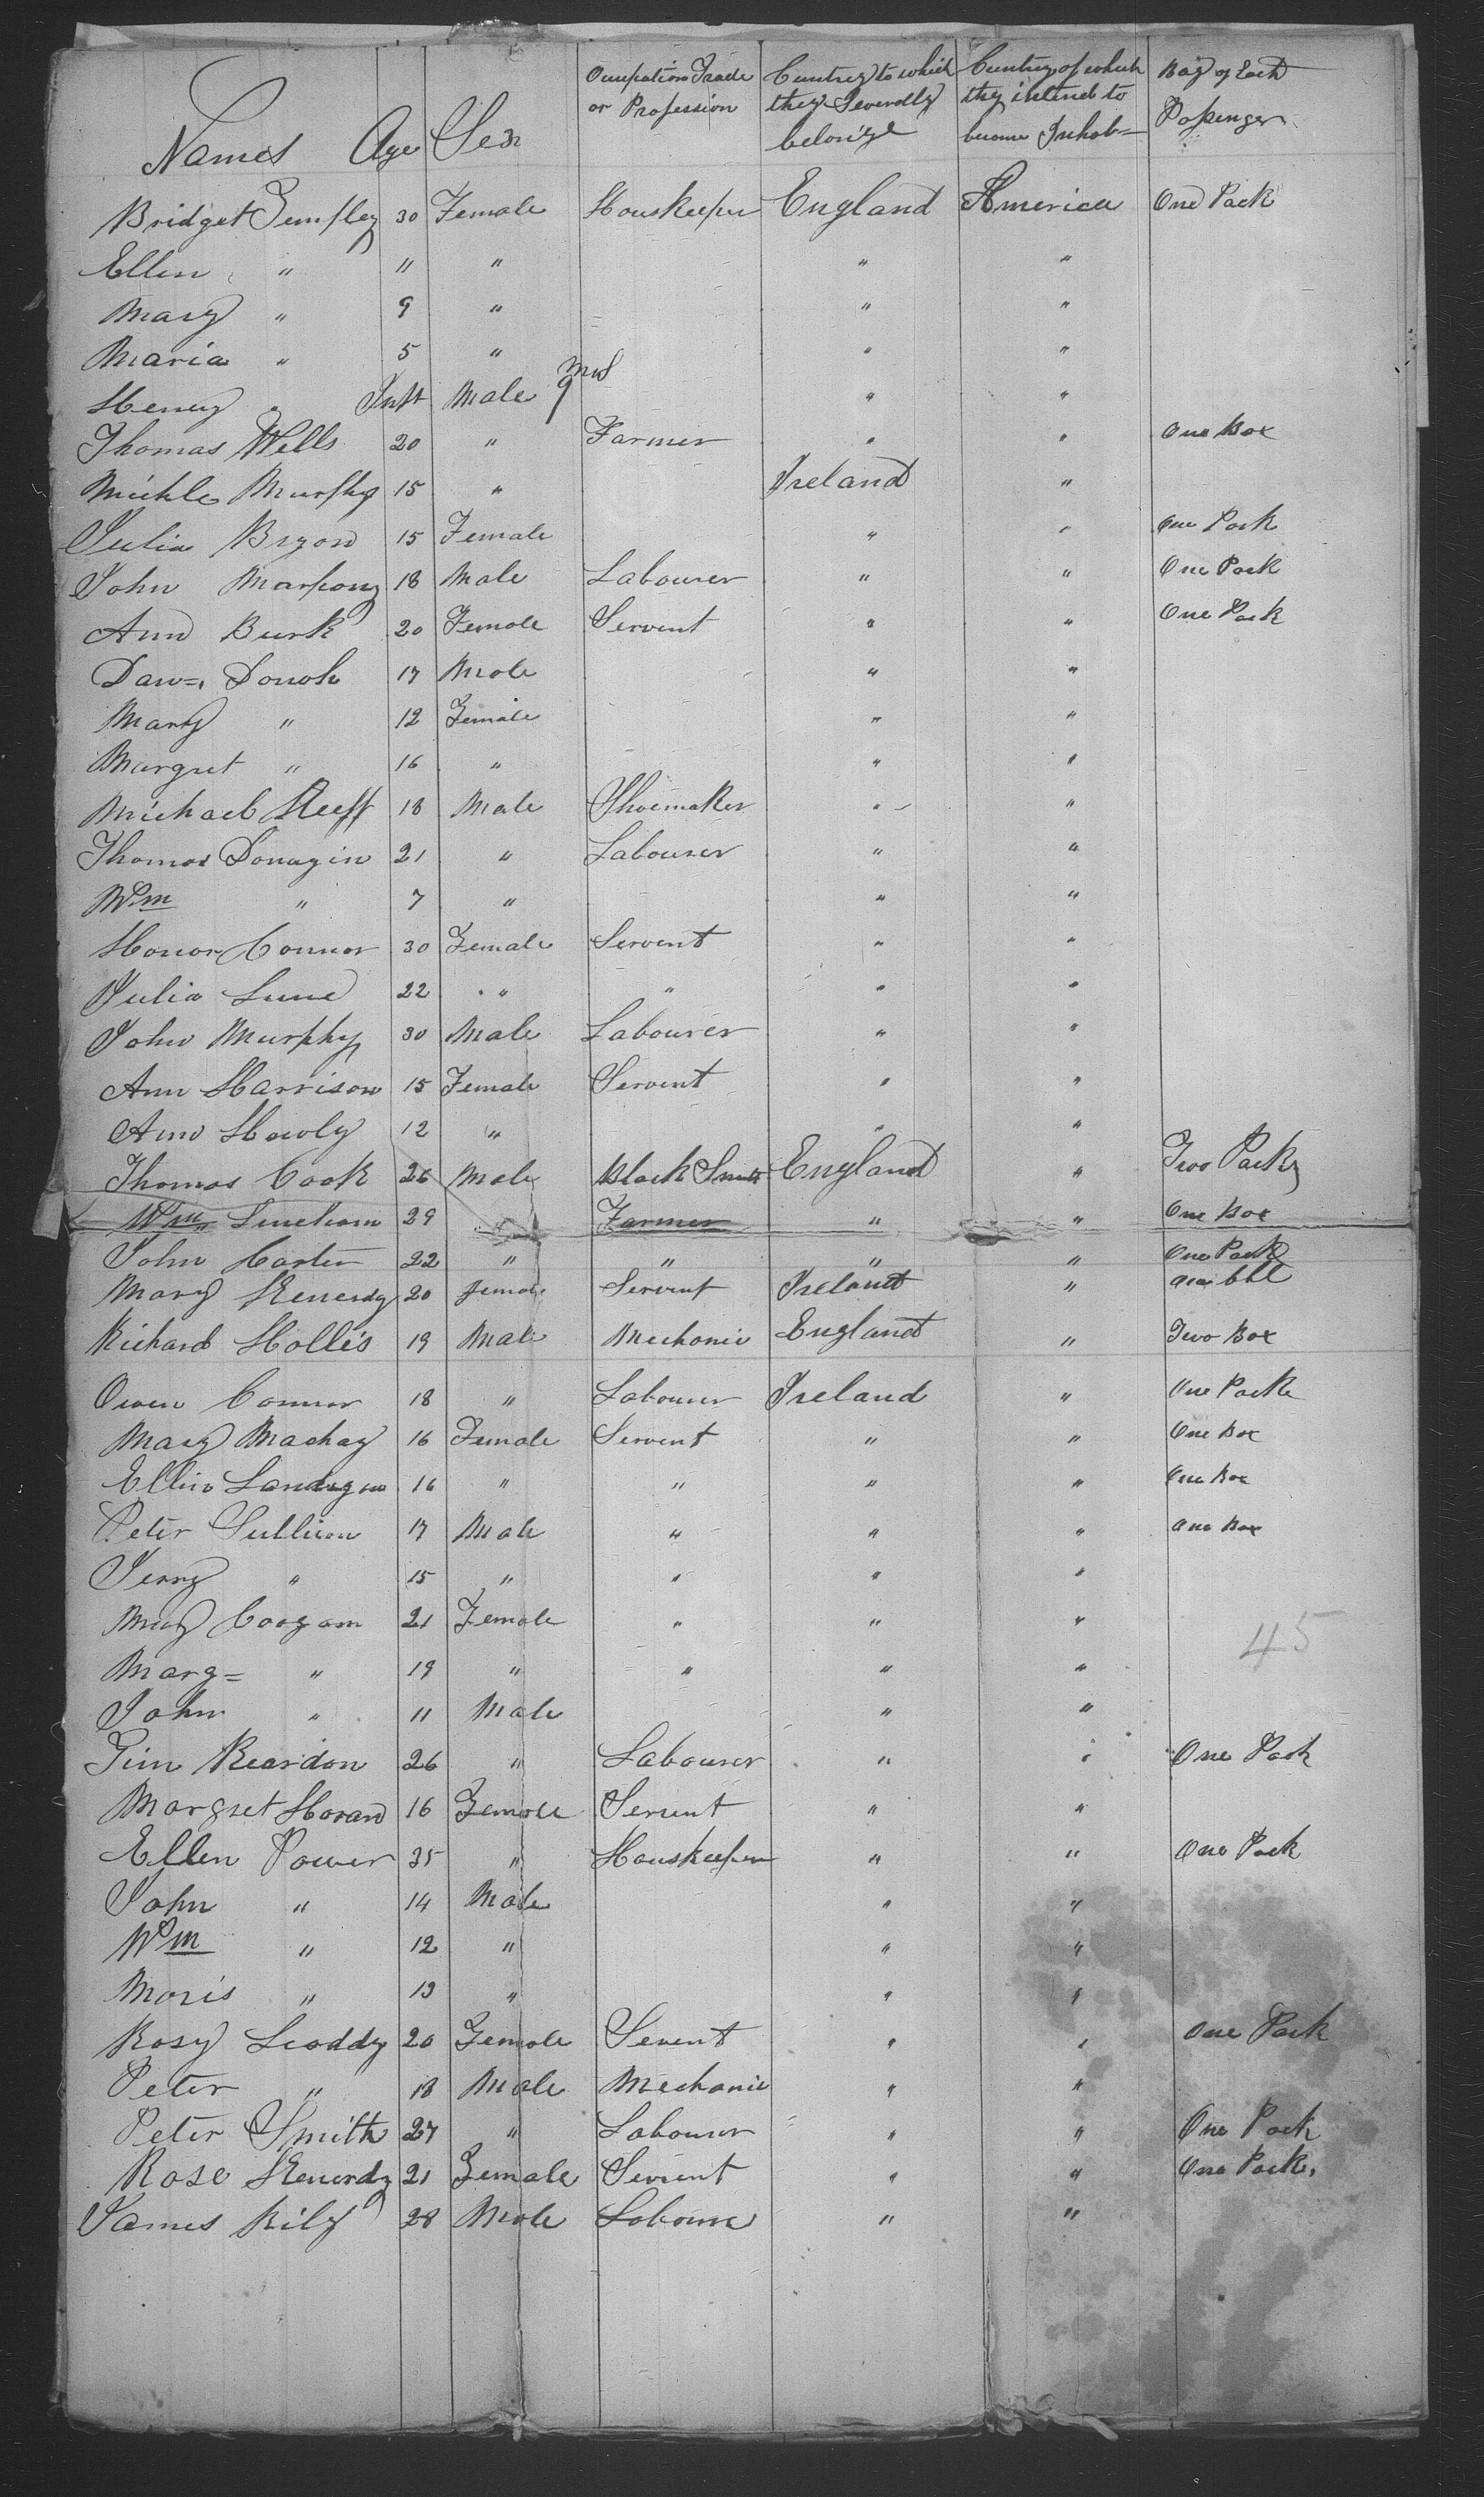 Names Age Sex Occupation Trade or Profession Cuntrey to which they Severally belonge Cuntrey of which they intend to become Inhab= Bag of Each Passenger
Bridget Gemfley 30 Female Houskeeper England America One Pack
Ellen " 11 " " "
Mary " 9 " " "
Maria " 5 " " "
Henry " Inft Male 9 mos " "
Thomas Wells 20 " Farmer " " One Box
Michle Murfhy 15 " Ireland "
Julia Bryon 15 Female " " One Pack
John 18 Male Labourer " " One Pack
Ann Burk 20 Female Servent " " One Pack
Dan= Donoh 17 Male " "
Mary " 12 Female " "
Margret " 16 " " "
Michael Keeff 18 Male Shoemaker " "
Thomas Donagin 21 " Labourer " "
Wm " 7 " " "
Honor Connor 30 Female Servent " "
Julia Lune 22 " " " "
John Murphy 30 Male Labourer " "
Ann Harrison 15 Female Servent " "
Ann Howly 12 " " "
Thomas Cook 26 Male Black Smith England " Two Packs
Wm Lincham 29 Farmer " " One Box
John Carter 22 " " " " One Pack
Mary Kenerdy 20 Female Servent Ireland " One bbl
Richard Hollis 19 Male Mechanic England " Two Box
Owen Connor 18 " Labourer Ireland " One Pack
Mary Mackay 16 Female Servent " " One Box
Ellin 16 " " " " One Box
Peter Sullivan 17 Male " " " One Box
Jerry " 15 " " " "
Mary Coogam 21 Female " " "
45
Marg= " 19 " " " "
John " 11 Male " "
Jim Reardon 26 " Labourer " " One Pack
Margret Horan 16 Female Servent " "
Ellen Power 35 " Houskeeper " " One Pack
John " 14 Male " "
Wm " 12 " " "
Moris " 13 " " "
Rosy Leoddy 20 Female Sevent " " One Pack
Peter " 18 Male Mechanic " "
Peter Smith 27 " Labourer " " One Pack
Rose Kenerdy 21 Female Servent " " One Pack.
James Rily 28 Male Labourer " "